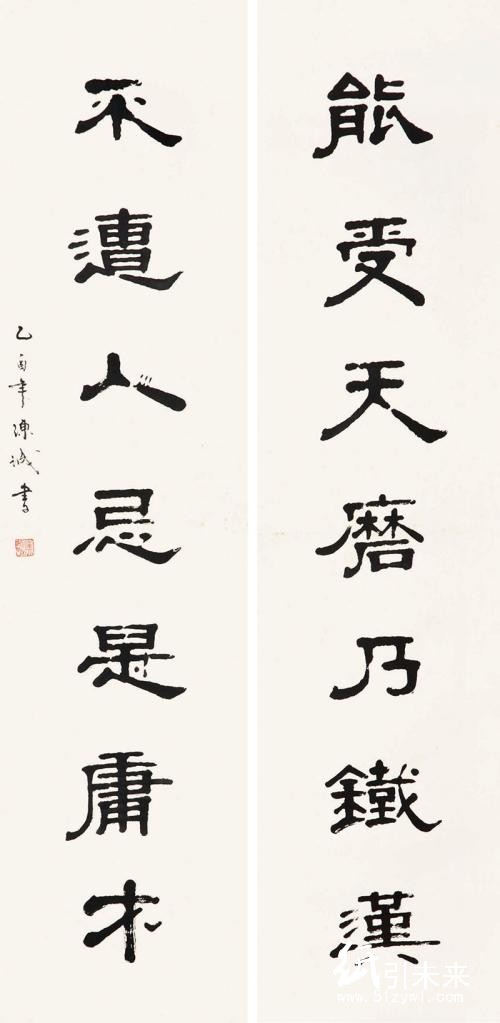 能受天磨乃鐵漢
不遭人忌是庸才
乙酉年陳誠書
引未来